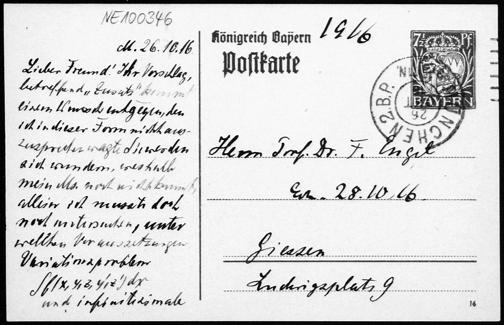 NE100346
M. 26.10.16
Lieber Freund! Ihr Vorschlag,
betreffend "Zusatz" kommt
einem Wunsch entgegen, den
ich in dieser Form nicht aus-
zusprechen wagte. Sie werden
sich wundern, weshalb
mein Ms. noch nicht kommt,
allein ich musste doch
noch untersuchen, unter
welchen Voraussetzungen
Variationsproblem
∫f(x, y, z, y', z') dx
und infinitesimale
Königreich Bayern
1916
Postkarte
7½ Pf
BAYERN
MÜNCHEN 2 B.P.
26
Herrn Prof. Dr. F. Engel
28.10.16
Giessen
Ludwigsplatz 9
16